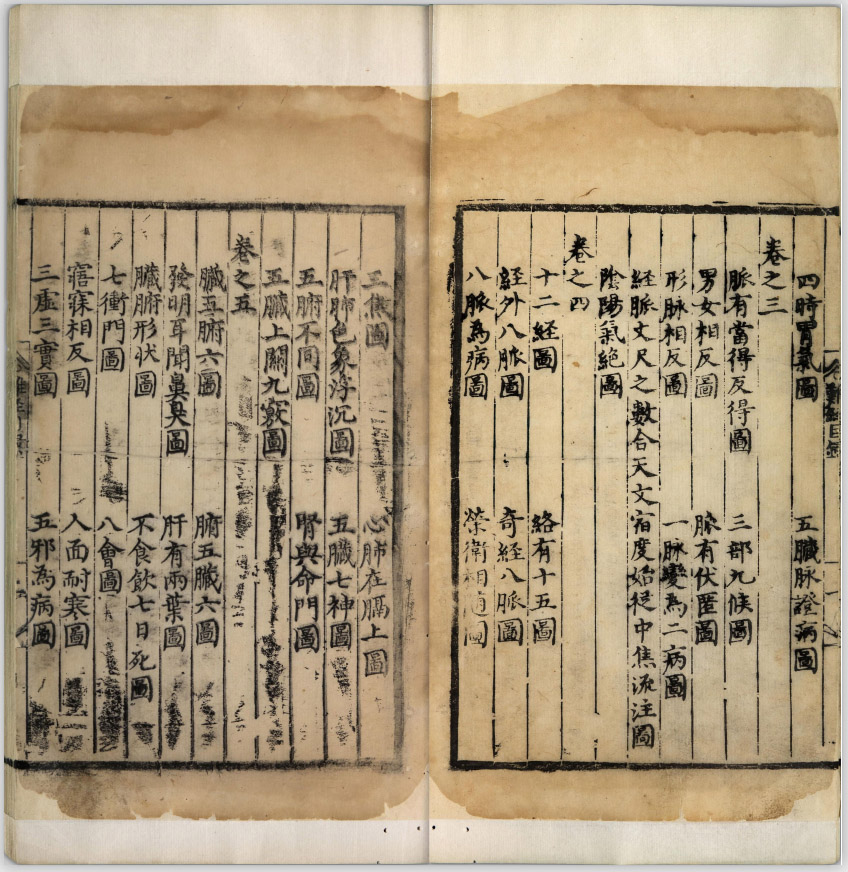 四時胃氣圖　五臟脉證病圖
卷之三
脈有當得反得圖　三部九候圖
男女相反圖　脉有伏匿圖
形脉相反圖　一脉變為二病圖
經脈丈尺之數合天文宿度始從中焦流注圖
陰陽氣絶圖
卷之四
十二経圖　絡有十五圖
経外八脈圖　奇経八脈圖
八脈為病圖　榮衛相隨圖
三焦圖　心肺在膈上圖
肝肺色象浮沉圖　五臟七神圖
五腑不同圖　腎與命門圖
五臟上關九竅圖
卷之五
臟五腑六圖　腑五臟六圖
發明耳聞鼻臭圖　肝有兩葉圖
臟腑形状圖　不食飲七日死圖
七衝門圖　八會圖
寤寐相反圖　人面耐寒圖
三虛三實圖　五邪為病圖